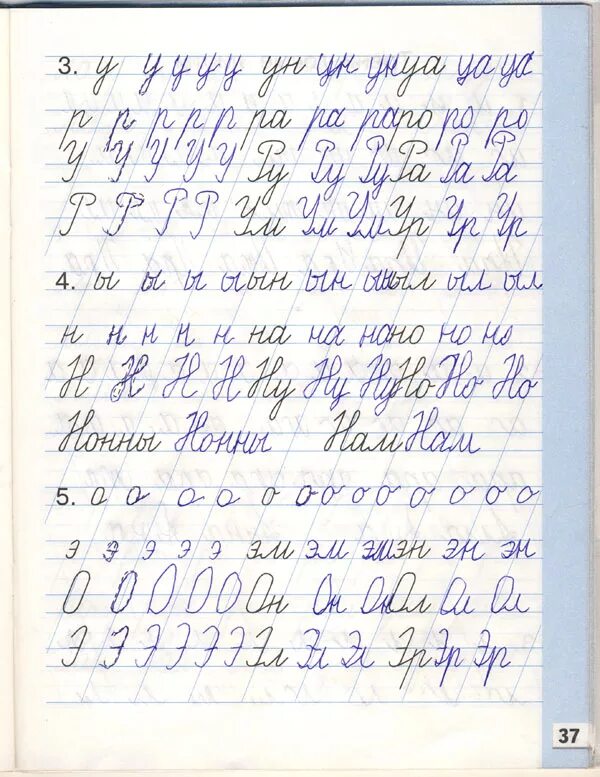 3. у у у у у ун ун ун уа уа уа
р р р р р ра ра ра ро ро ро
У У У У У Ру Ру Ру Ра Ра Ра
Р Р Р Р Ум Ум Ум Ур Ур Ур
4. ы ы ы ы ын ын ын ыл ыл ыл
н н н н н на на на но но но
Н Н Н Н Ну Ну Ну Но Но Но
Нонны Нонны Нам Нам
5. о о о о о о о о о о о о о
э э э э э эм эм эм эн эн эн
О О О О О Он Он Он Ол Ол Ол
Э Э Э Э Э Э Эл Эл Эл Эр Эр Эр
37